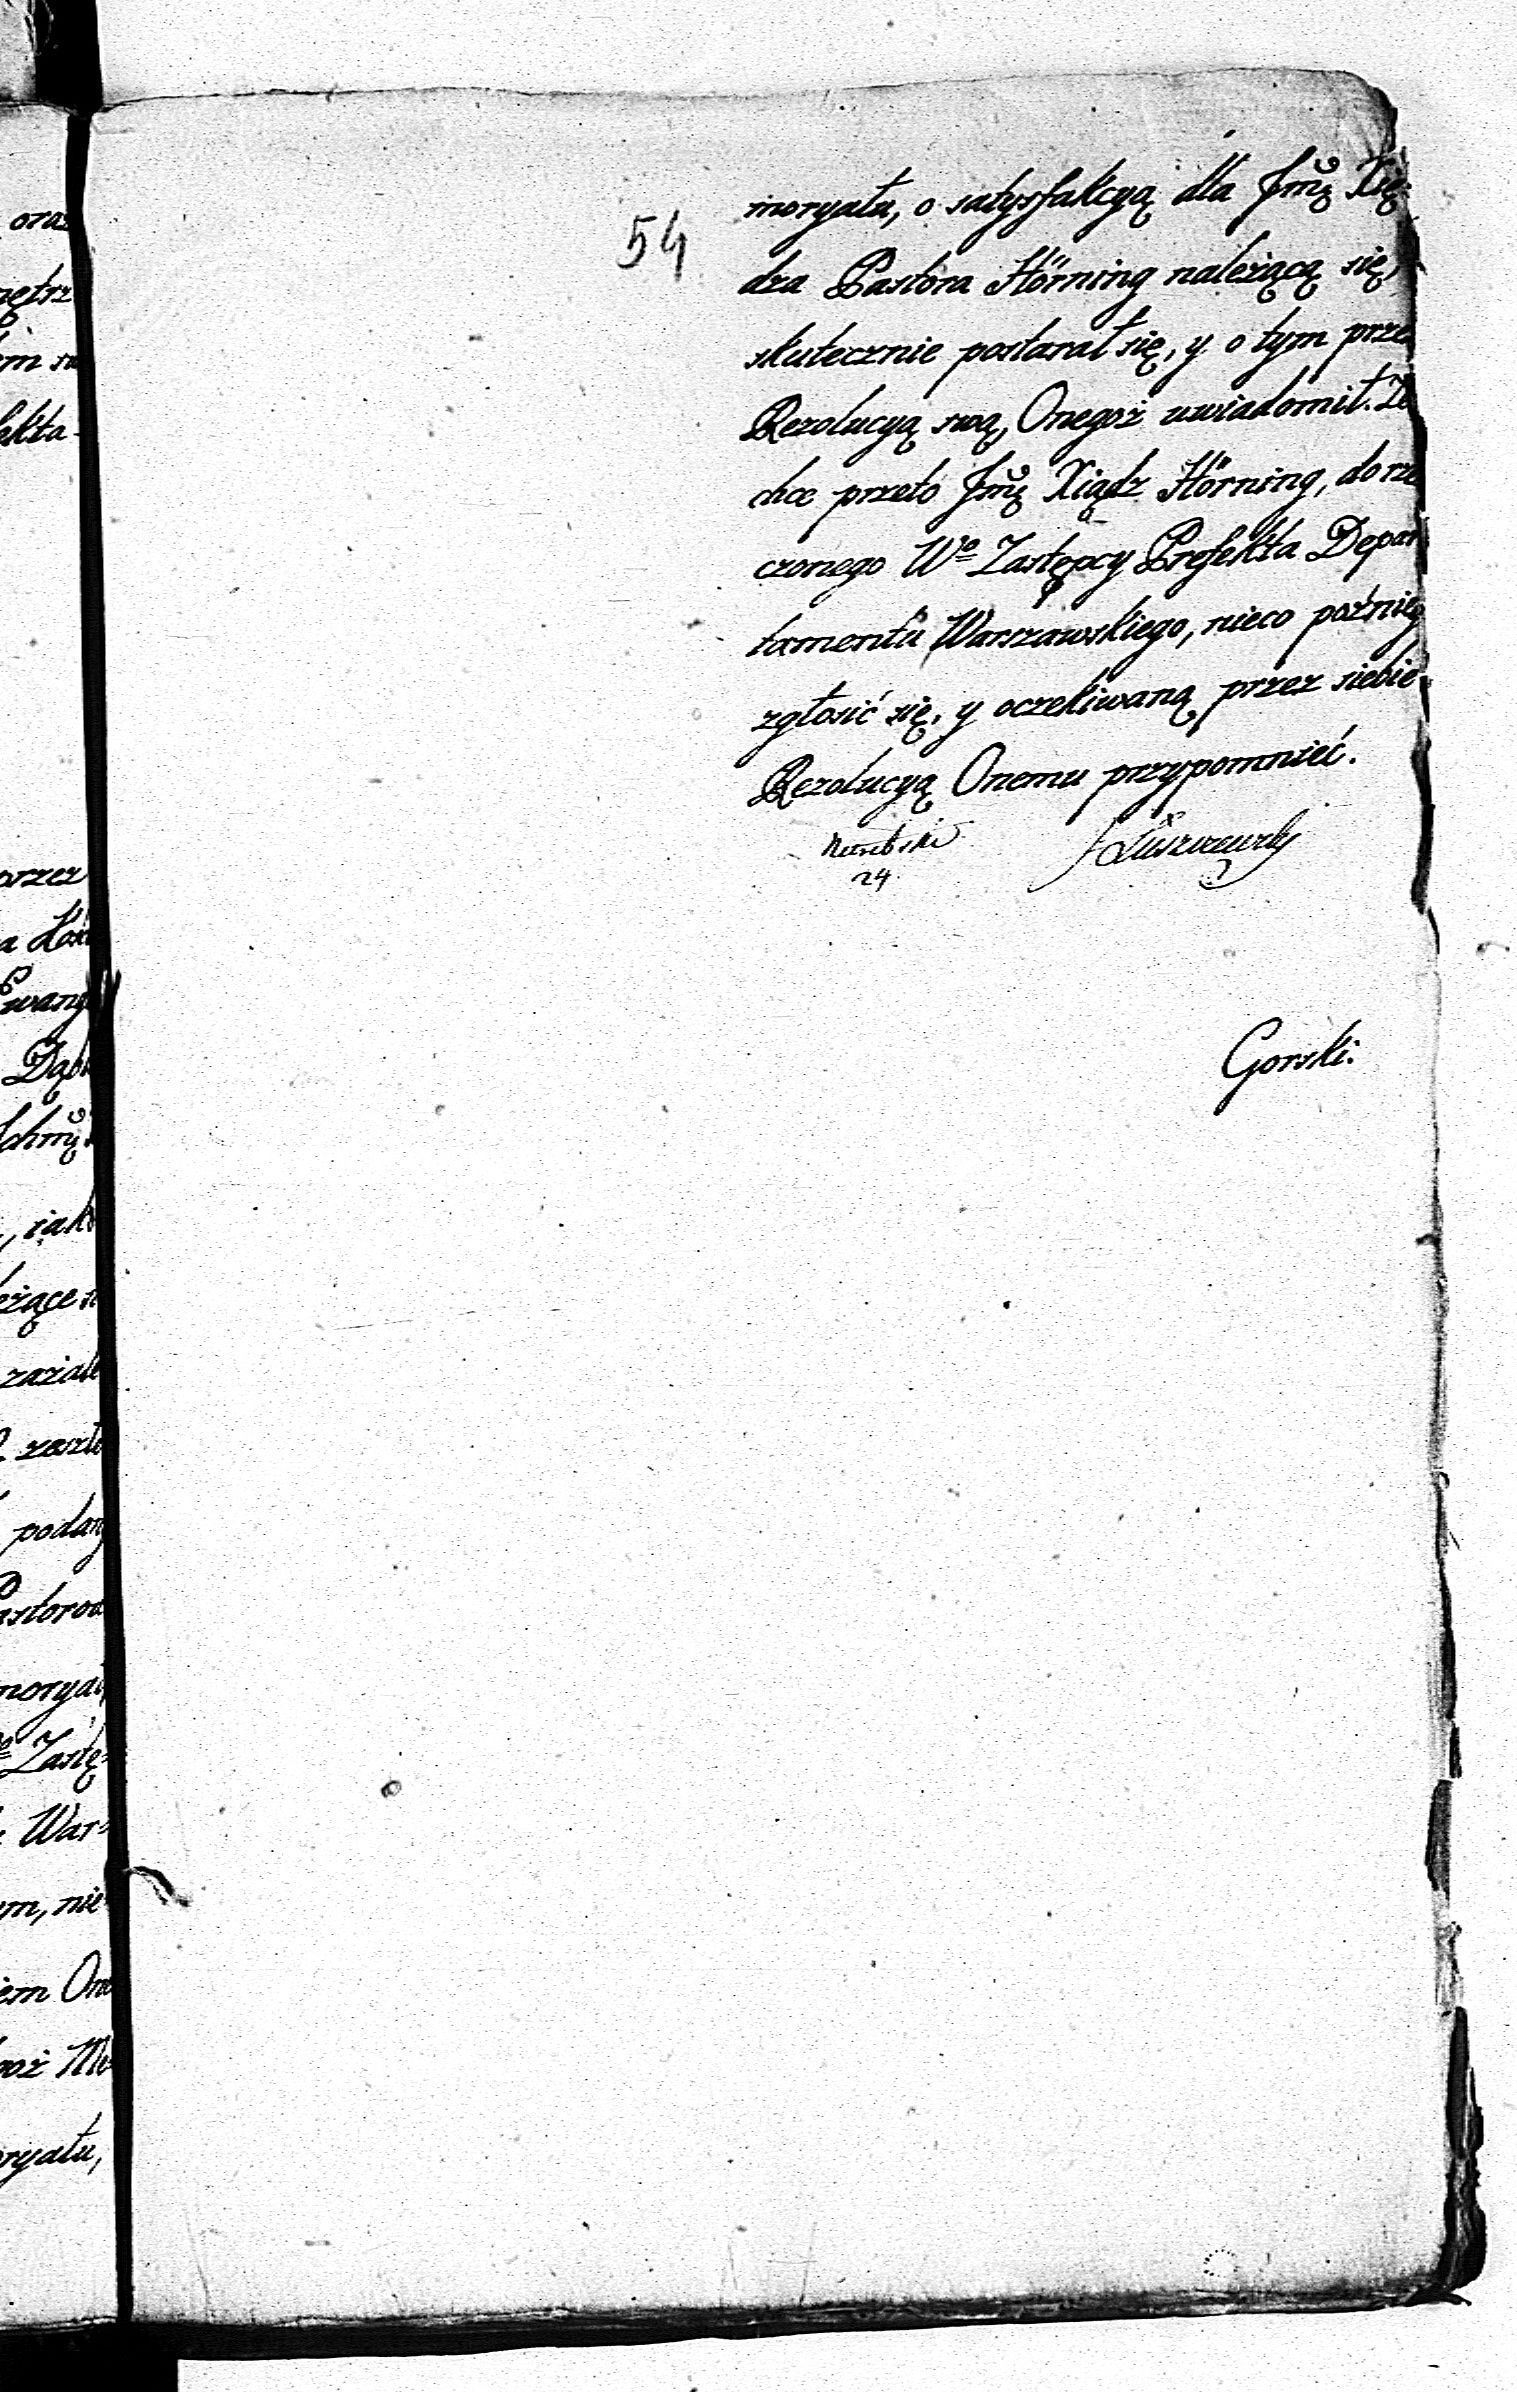 oraz
nętrz
ekta-
przez
Ewang
, iako
eżące
podany
Pastorow
moryał
Zastę-
War-
em, nie
iem One
goż Me
oryału,
54
moryału, o satysfakcyą dla Jmę Xię-
dza Pastora Hörning należącą się,
skutecznie postarał się, y o tym prze
Rezolucyą swą, Onegoż uwiadomił. Ze
chce przeto Jmę Xiądz Hörning, do rze
czonego Wo Zastępcy Prefekta Depar
tamentu Warszawskiego, nieco pożniey
zgłosić się, y oczekiwaną przez siebie
Rezolucyą Onemu przypomnieć.
24
Łuszczewski
Gorski.